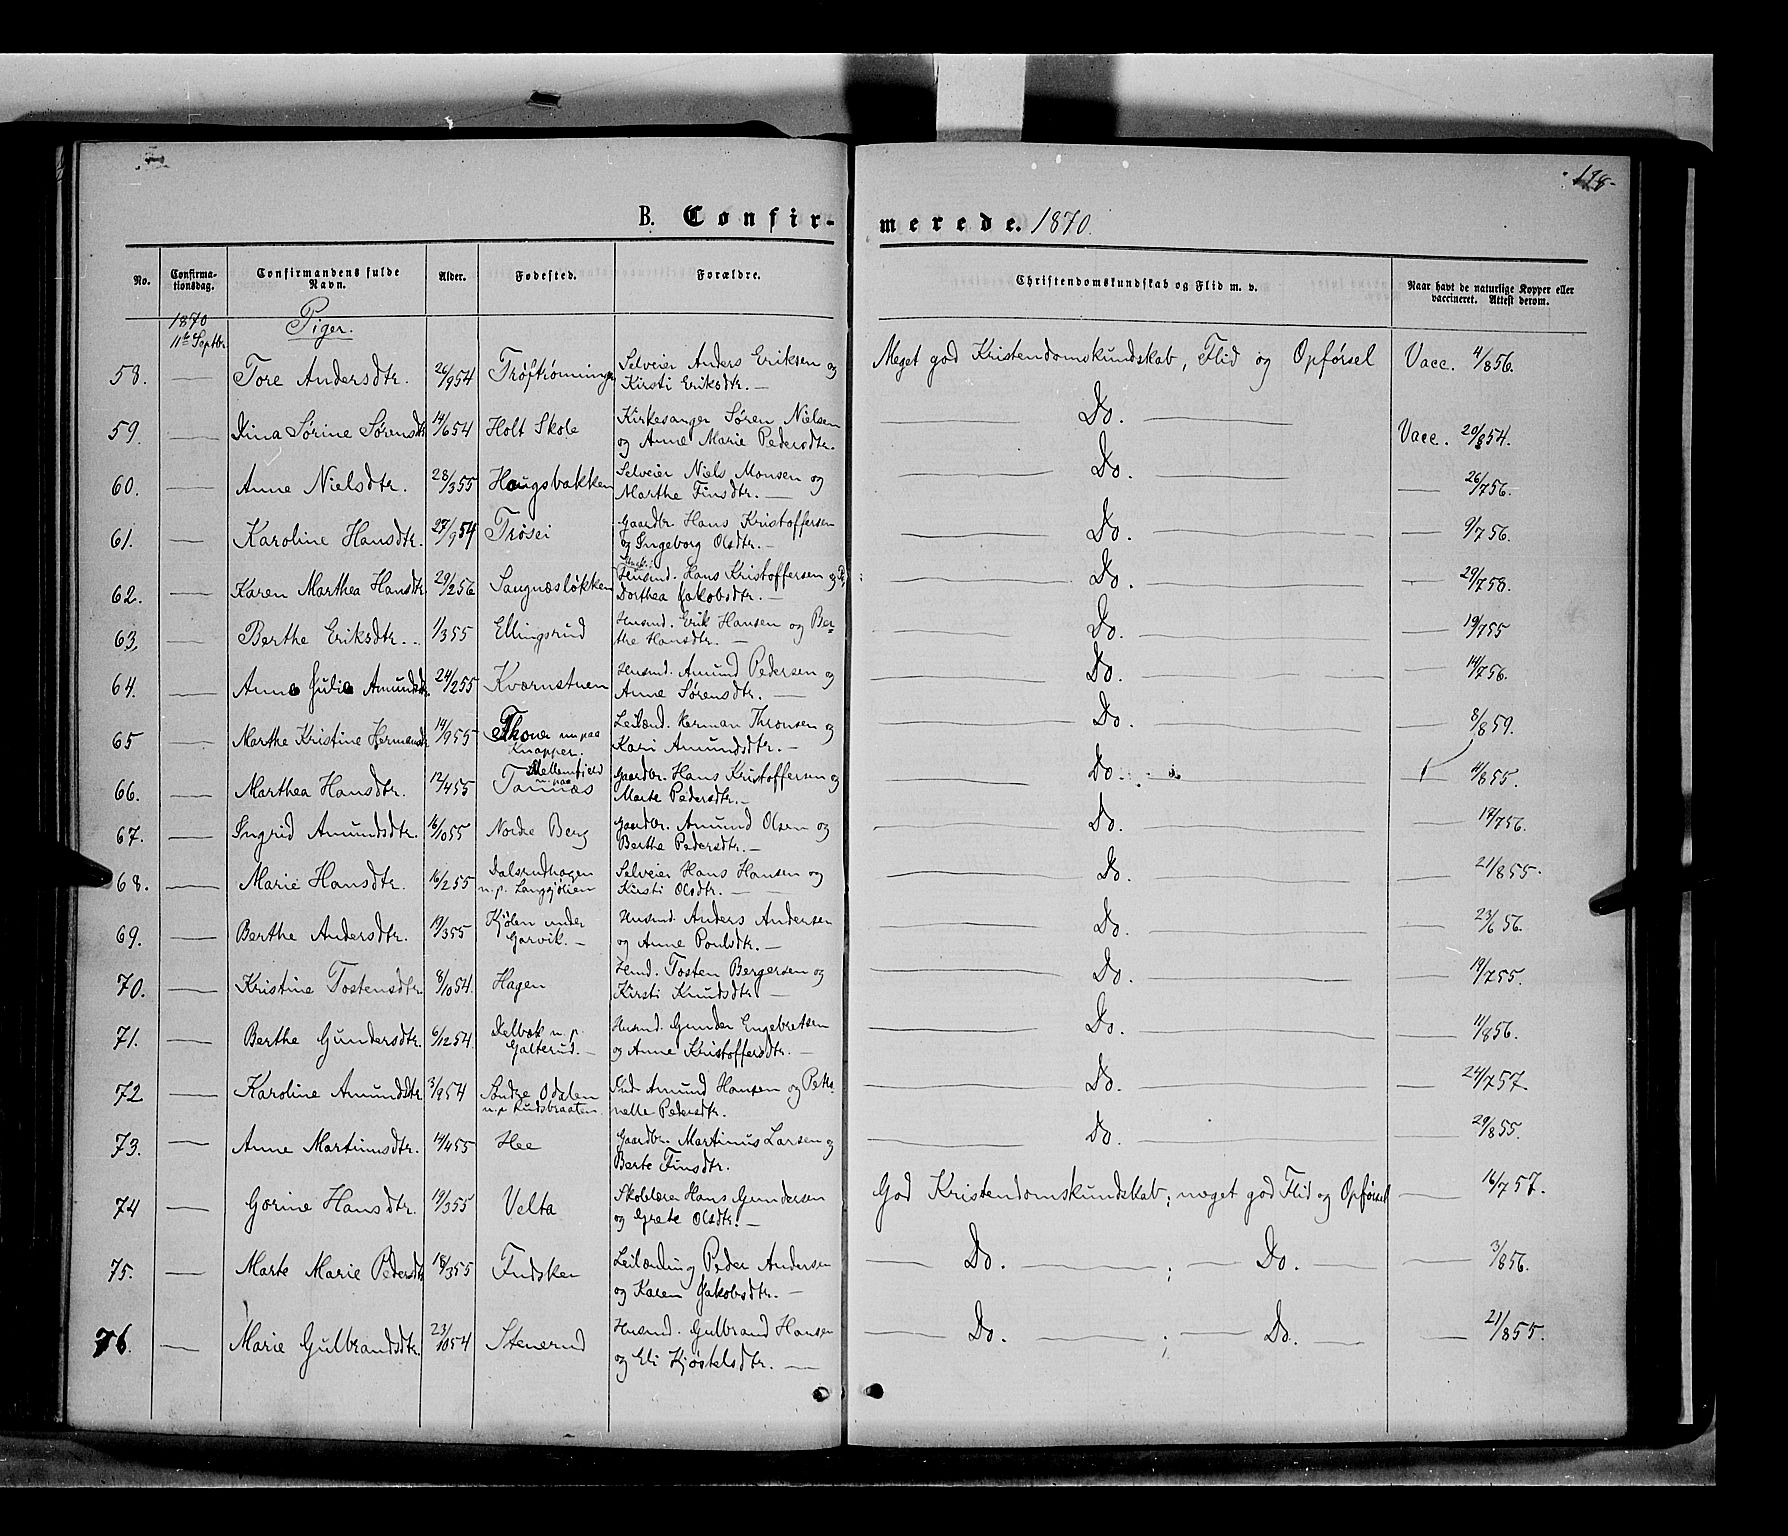 118.
B. Confir-merede. 1870.
No. Confirma-tionsdag. Confirmandens fulde Navn. Alder. Fødested. Forældre. Christendomskundskab og Flid m. v. Naar havt de naturlige Kopper eller vaccineret. Attest derom.
1870 11te Septbr Piger.
58. — Tore Andersdtr. 26/9 54 Selveier Anders Eriksen og Kirsti Eriksdtr. — Meget god Kristendomskundskab, Flid og Opførsel Vacc. 4/8 56.
59. — Sørine Sørensdtr 14/6 54 Holt Skole Kirkesanger Søren Nielsen og Anne Marie Pedersdtr. — Do. — Vacc. 20/8 54.
60. — Anne Nielsdtr. 28/3 55 Haugsbakken Selveier Niels Monsen og Marthe Finsdtr. — Do. — 26/7 56.
61. — Karoline Hansdtr. 27/9 54 Trøsei Gaardbr. Hans Kristoffersen og Ingeborg Olsdtr. — Do. — 9/7 56.
62. — Karen Marthea Hansdtr 29/2 56 Sangnæsløkken Husmd. Hans Kristoffersen og Dorthea Jakobsdtr. — Do. — 29/7 58.
63. — Berthe Eriksdtr. 1/3 55 Ellingsrud Husmd. Erik Hansen og Ber-the Hansdtr. — Do. — 19/7 55
64. — Anne Julie Amundsdtr 24/2 55 Kværnstuen Husmd. Amund Pedersen og Anne Sørensdtr. — Do. — 14/7 56.
65 — Marthe Kristine Hermansdtr 14/9 55 Thoner nu paa Knapper. Leilænd. Herman Thronsen og Kari Amundsdtr. — Do. — 8/8 59.
66. — Marthea Hansdtr. 12/4 55 Mellemfield n. paa Tannæs Gaardbr. Hans Kristoffersen og Marte Pedersdtr. — Do. — 4/8 55.
67. — Ingrid Amundsdtr. 16/10 55 Nordre Berg Gaardbr. Amund Olsen og Berthe Pedersdtr. — Do. — 17/7 56.
68. — Marie Hansdtr. 16/2 55 Dalsrudhagen n. p. Selveier Hans Hansen og Kirsti Olsdtr. — Do. — 21/8 55.
69. — Berthe Andersdtr. 19/3 55 Kjølen under Garvik. — Husmd. Anders Andersen og Anne Poulsdtr. — Do. — 23/6 56.
70. — Kristine Tostensdtr 8/10 54. Hagen Tosten Bergersen og Kirsti Knudsdtr. — Do. — 19/7 55.
71. — Berthe Gundersdtr. 6/12 54. n. p. Galterud. — Husmd. Gunder Engebretsen og Anne Kristoffersdtr. — Do. — 11/8 56.
72 — Karoline Amundsdtr 3/9 54 Søndre Odalen n. p. Rudsbraaten. Amund Hansen og Petro-nelle Pedersdtr. Do. — 24/7 57.
73. — Anne Martinusdtr. 14/4 55 Hee Gaardbr. Martinus Larsen og Berte Finsdtr. Do. — 29/8 55.
74 — Gorine Hansdtr. 19/3 55 Velta Skolelærer Hans Gundersen og Grete Olsdtr. — God Kristendomskundskab; meget god Flid og Opførsel — 16/7 57.
75. — Marte Marie Pedersdtr 18/3 55 Fudsken Leilænding Peder Andersen og Karen Jakobsdtr. — Do. — ; — Do. — 3/8 56.
76. — Marie Gulbrandsdtr. 23/10 54 Stenerud Husmd. Gulbrand Hansen og Eli Kjøstelsdtr. — Do. — ; — Do. — 21/8 55.